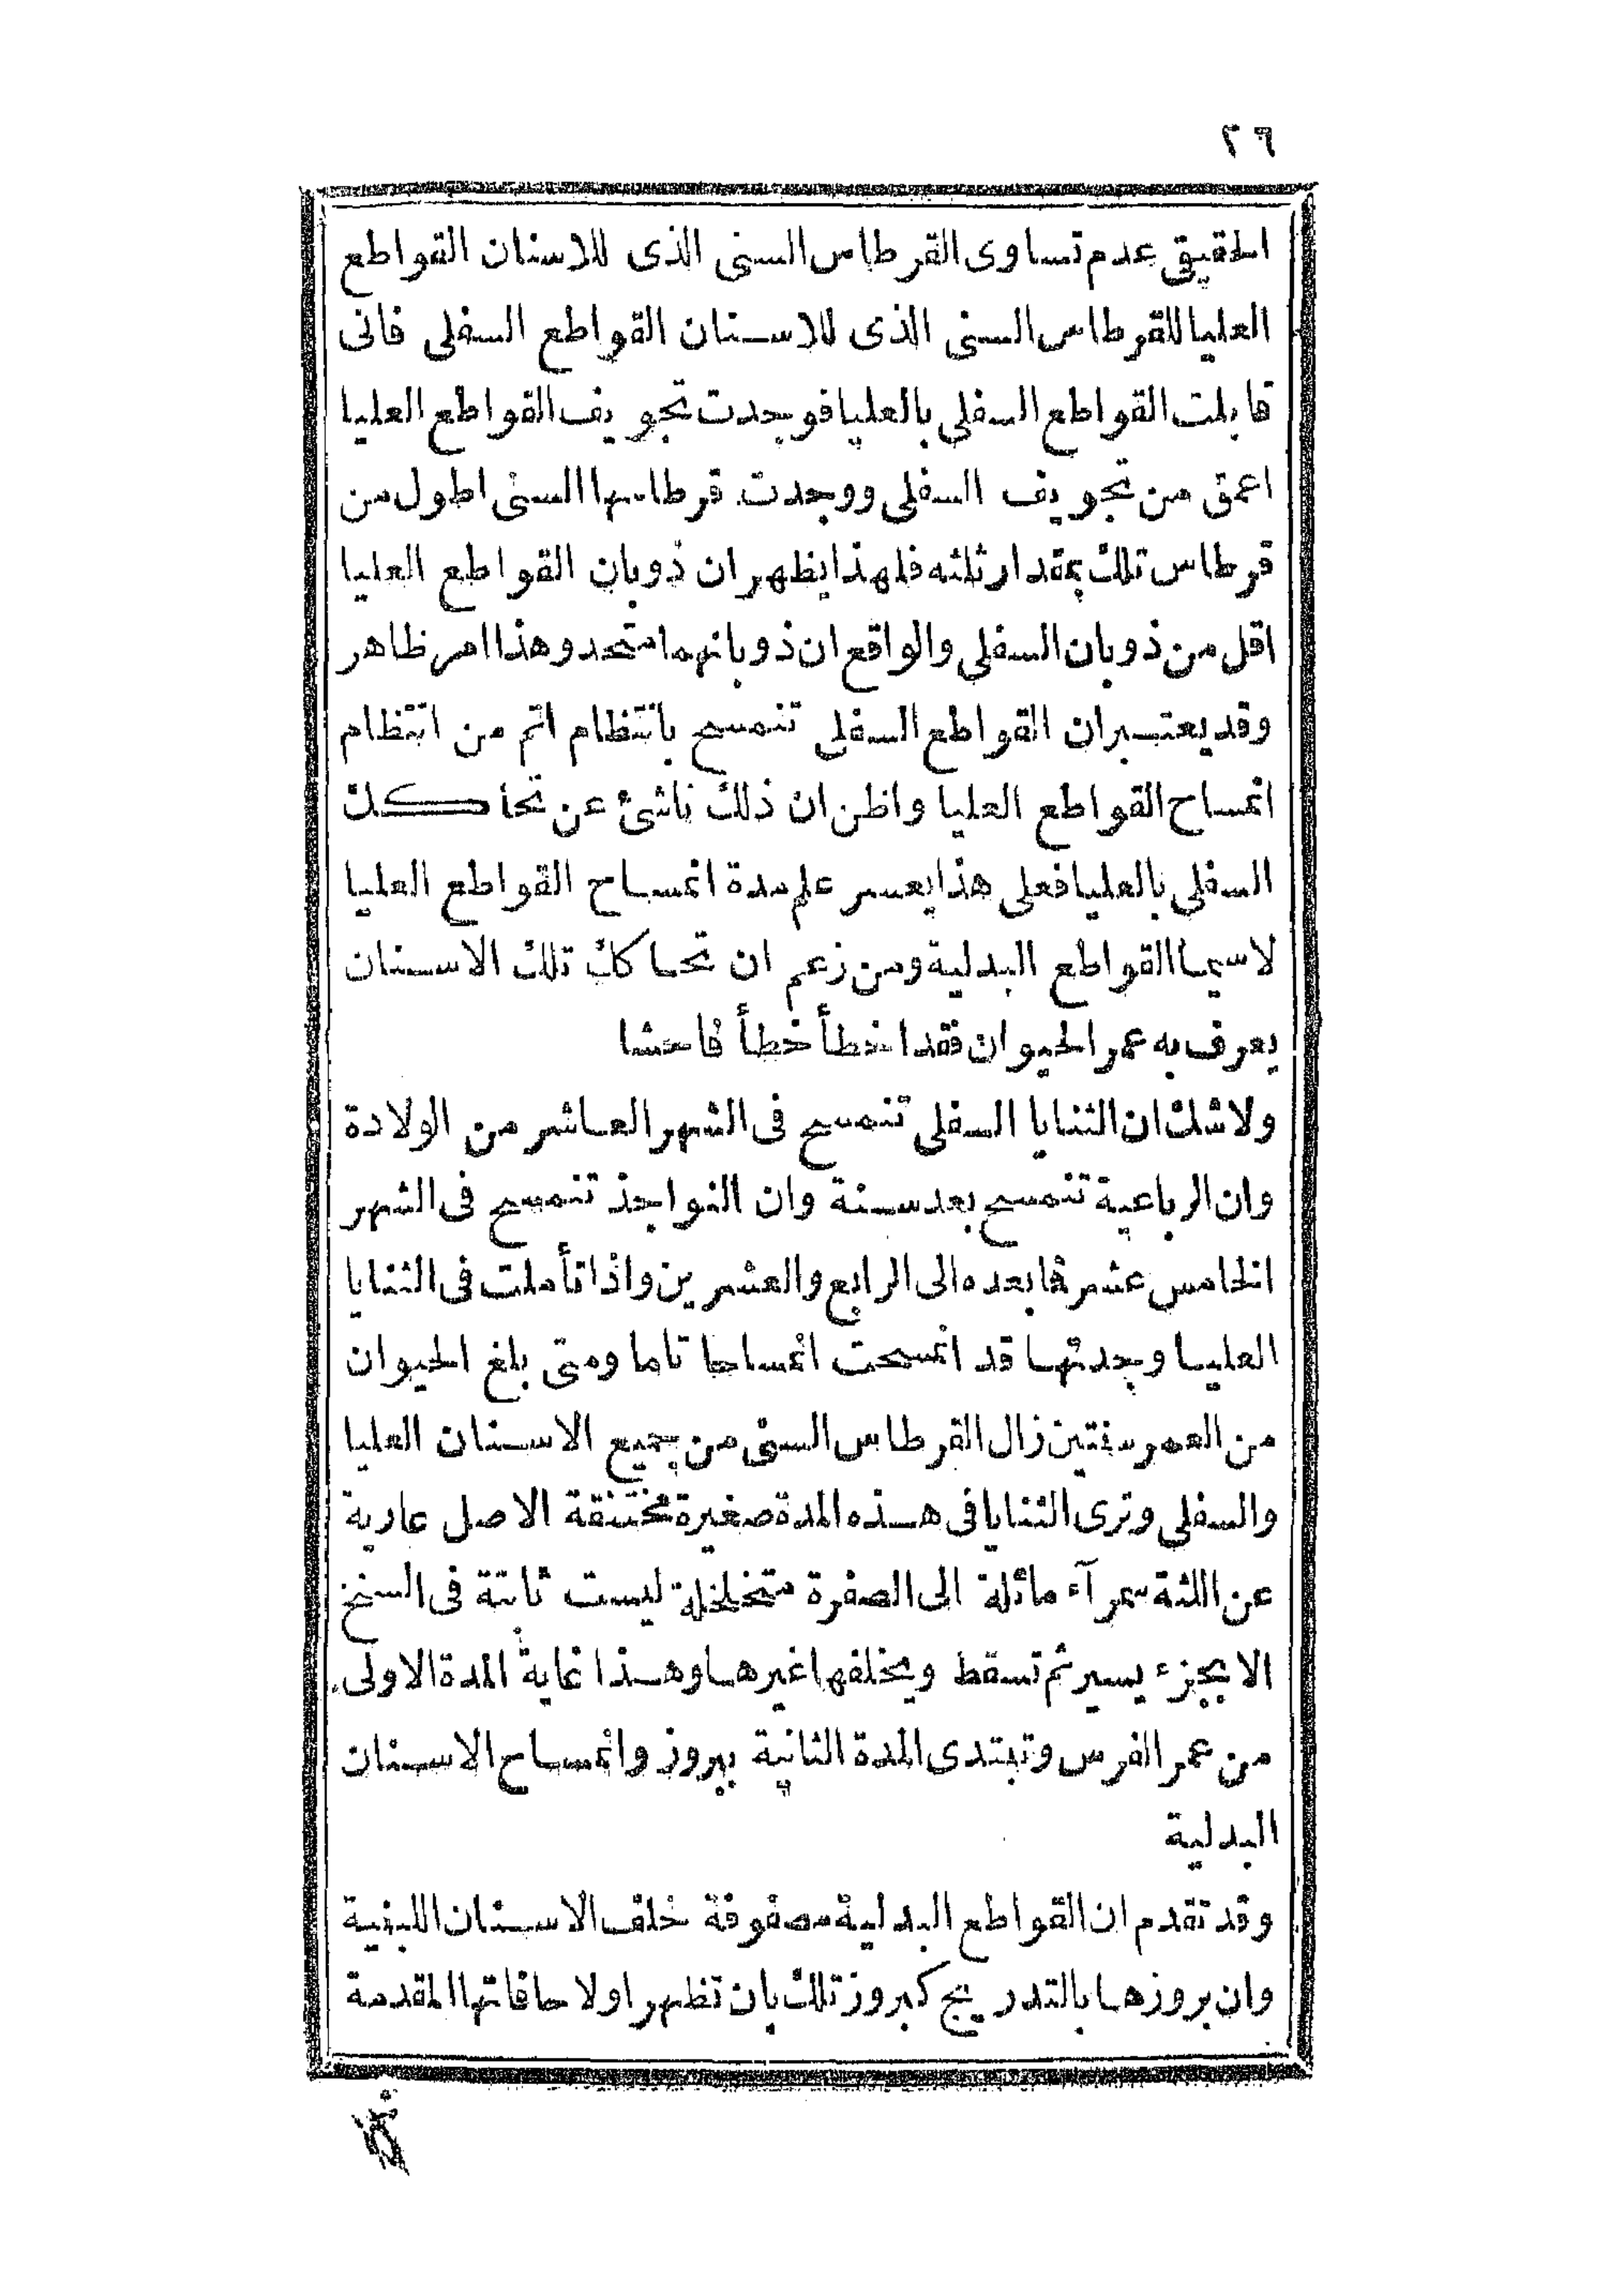 ٢٦
الحقيقى عدم تساوى القرطاس السنى الذى للاسنان القواطع
العليا للقرطاس السنى الذى للاسنان القواطع السفلى فانى
قابلت القواطع السفلى بالعليا فوجدت تجويف القواطع العليا
اعمق من تجويف السفلى ووجدت قرطاسها السنى اطول من
قرطاس تلك بمقدار ثلثه فلهذا يظهر ان ذوبان القواطع العليا
اقل من ذوبان السفلى والواقع ان ذوبانهما متحد وهذا امر ظاهر
وقد يعتبر ان القواطع السفلى تنمسح بانتظام اتم من انتظام
انمساح القواطع العليا واظن ان ذلك ناشئ عن تحاكك
السفلى بالعليا فعلى هذا يعسر علم مدة انمساح القواطع العليا
لاسيما القواطع البدلية ومن زعم ان تحاكك تلك الاسنان
يعرف به عمر الحيوان فقد اخطأ خطأ فاحشا
ولاشك ان الثنايا السفلى تنمسح فى الشهر العاشر من الولادة
وان الرباعية تنمسح بعد سنة وان النواجذ تنمسح فى الشهر
الخامس عشر فما بعده الى الرابع والعشرين واذا تأملت فى الثنايا
العليا وجدتها قد انمسحت انمساحا تاما ومتى بلغ الحيوان
من العمر سنتين زال القرطاس السنى من جميع الاسنان العليا
والسفلى وترى الثنايا فى هذه المدة صغيرة مختنقة الاصل عارية
عن اللثة سمرآء مائلة الى الصفرة متخلخلة ليست ثابتة فى السنخ
الا بجزء يسير ثم تسقط ويخلفها غيرها وهذا غاية المدة الاولى
من عمر الفرس وتبتدى المدة الثانية ببروز وانمساح الاسنان
البدلية
وقد تقدم ان القواطع البدلية مصفوفة خلف الاسنان اللبنية
وان بروزها بالتدريج كبروز تلك بان تظهر اولا حافاتها المقدمة